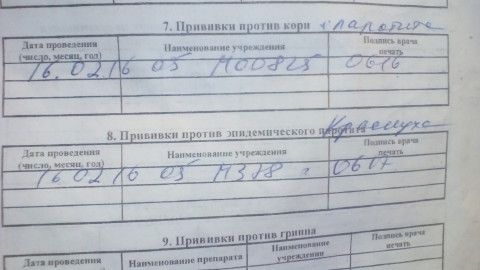 7. Прививки против кори и паротита
Дата проведения (число, месяц, год) Наименование учреждения Подпись врача печать
16.02.16 05 М00825 0616
8. Прививки против эпидемического паротита Краснуха
Дата проведения (число, месяц, год) Наименование учреждения Подпись врача печать
16 02 16 05 М378 0617
9. Прививки против гриппа
Дата проведения Наименование препарата Наименование учреждения Подпись врача печать